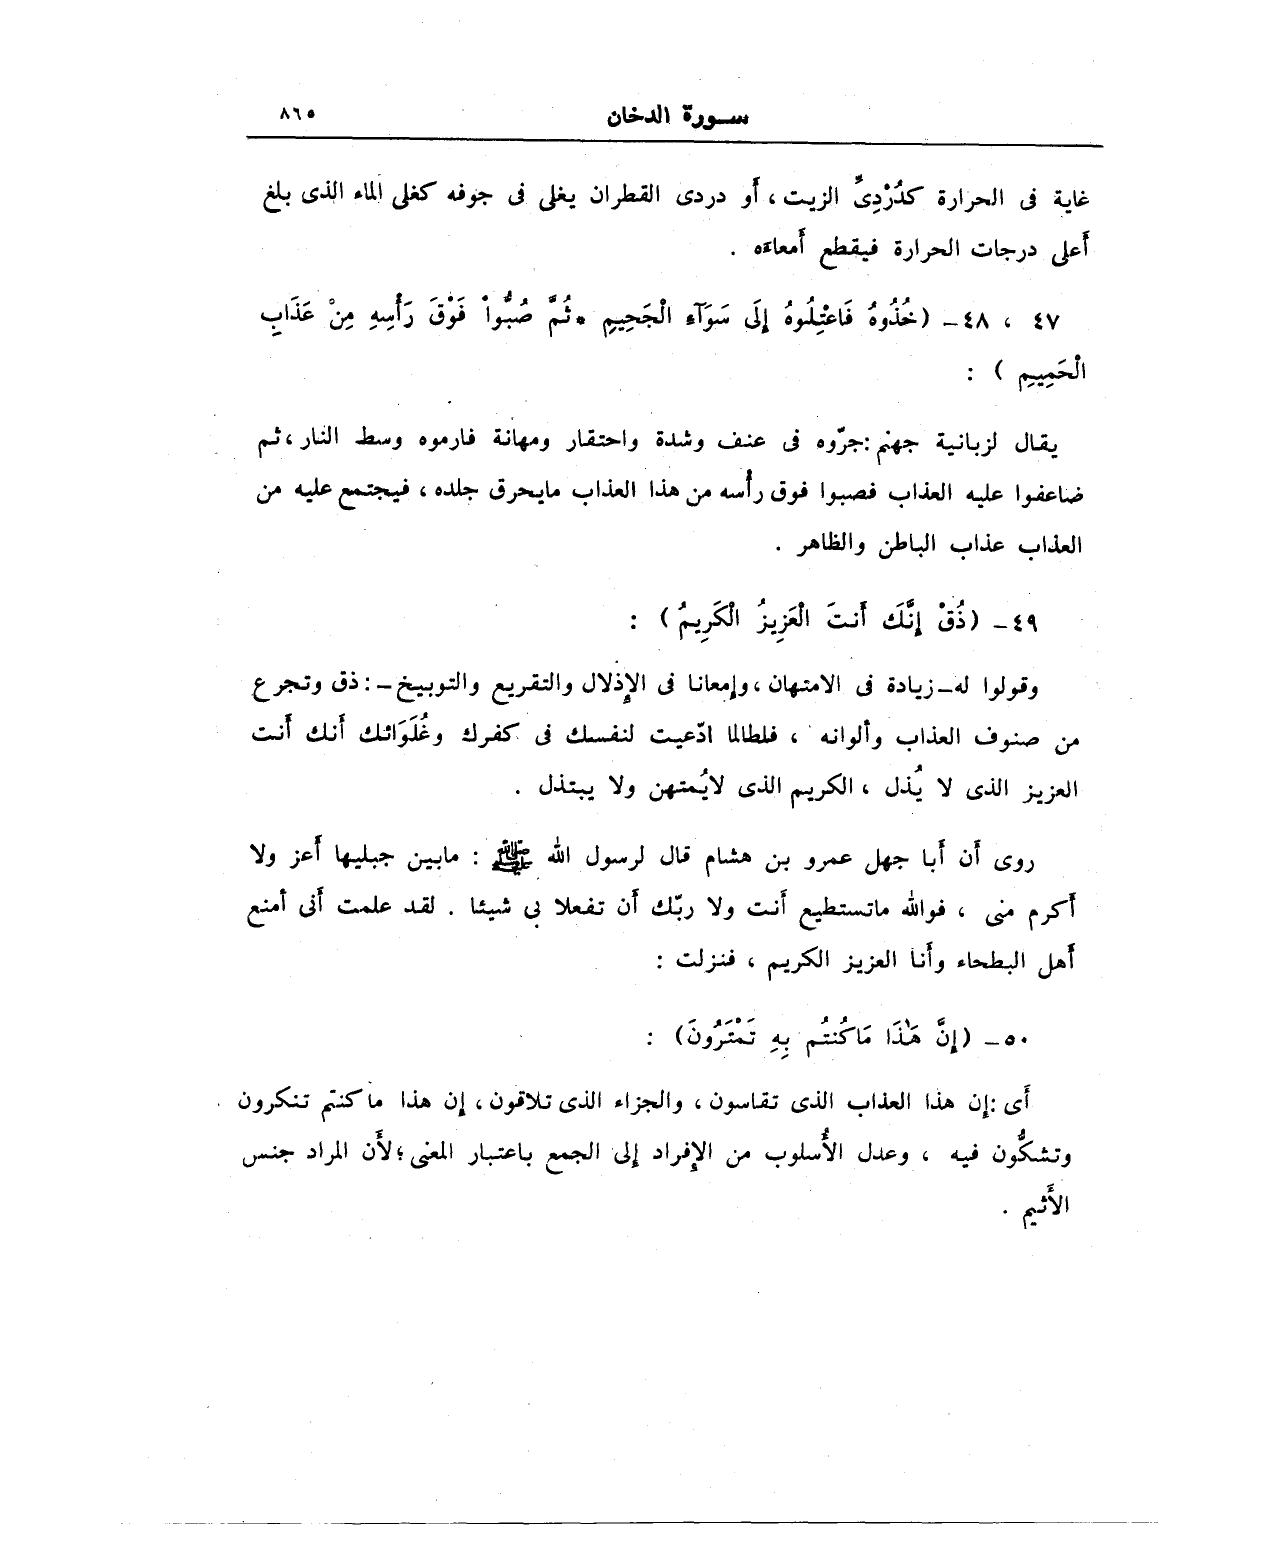 سورة الدخان ٨٦٥
غاية فى الحرارة كدُرْدِىِّ الزيت ، أَو دردى القطران يغلى فى جوفه كغلى الماء الذى بلغ
أَعلى درجات الحرارة فيقطع أَمعاءَه .
٤٧ ، ٤٨ ـ ( خُذُوهُ فَاعْتِلُوهُ إِلَى سَوَآءِ الْجَحِيمِ * ثُمَّ صُبُّواْ فَوْقَ رَأْسِهِ مِنْ عَذَابِ
الْحَمِيمِ ) :
يقال لزبانية جهنم : جرّوه فى عنف وشدة واحتقار ومهانة فارموه وسط النار ، ثم
ضاعفوا عليه العذاب فصبوا فوق رأْسه من هذا العذاب مايحرق جلده ، فيجتمع عليه من
العذاب عذاب الباطن والظاهر .
٤٩ ـ ( ذُقْ إِنَّكَ أَنتَ الْعَزِيزُ الْكَرِيمُ ) :
وقولوا له ـ زيادة فى الامتهان ، وإمعانا فى الإِذلال والتقريع والتوبيخ ـ : ذق وتجرع
من صنوف العذاب وألوانه ، فلطالما ادّعيت لنفسك فى كفرك وغُلَوَائك أَنك أَنت
العزيز الذى لا يُذل ، الكريم الذى لايُمتهن ولا يبتذل .
روى أَن أَبا جهل عمرو بن هشام قال لرسول الله ﷺ : مابين جبليها أَعز ولا
أَكرم منى ، فوالله ماتستطيع أَنت ولا ربّك أَن تفعلا بى شيئا . لقد علمت أَنى أمنع
أَهل البطحاء وأَنا العزيز الكريم ، فنزلت :
٥٠ ـ ( إِنَّ هَٰذَا مَاكُنتُم بِهِ تَمْتَرُونَ ) :
أَى : إن هذا العذاب الذى تقاسون ، والجزاء الذى تلاقون ، إن هذا ما كنتم تنكرون
وتشكُّون فيه ، وعدل الأُسلوب من الإِفراد إلى الجمع باعتبار المعنى ؛ لأَن المراد جنس
الأَثيم .